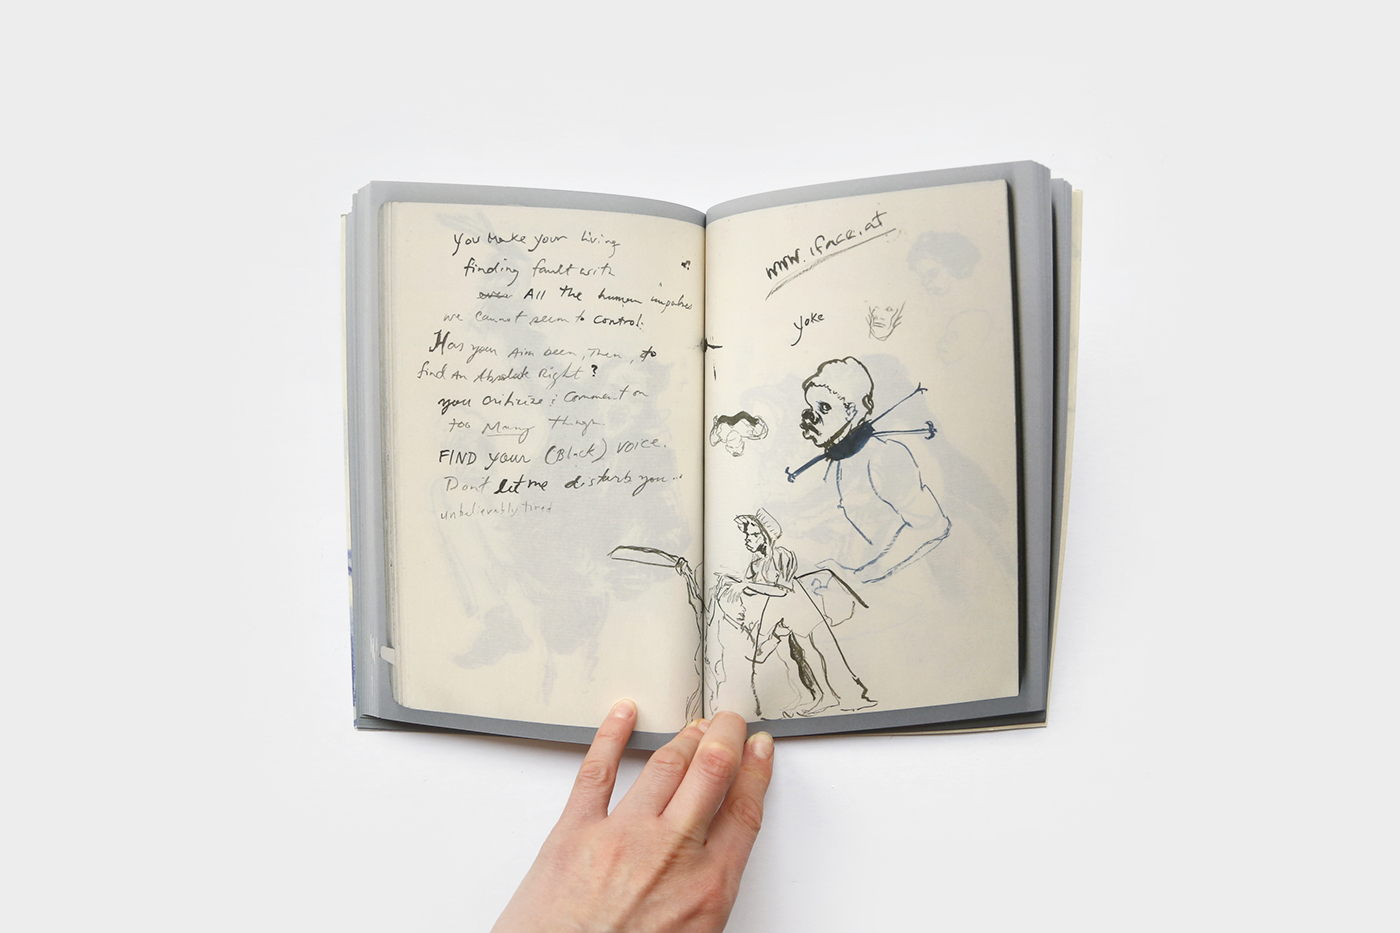 you make your living
finding fault with
All the human impulses
we cannot seem to control.
Has your Aim been, then, to
find An Absolute Right?
you criticize & comment on
too Many things.
FIND your (Black) voice.
Don't let me disturb you...
unbelievably tired
www.iface.at
yoke